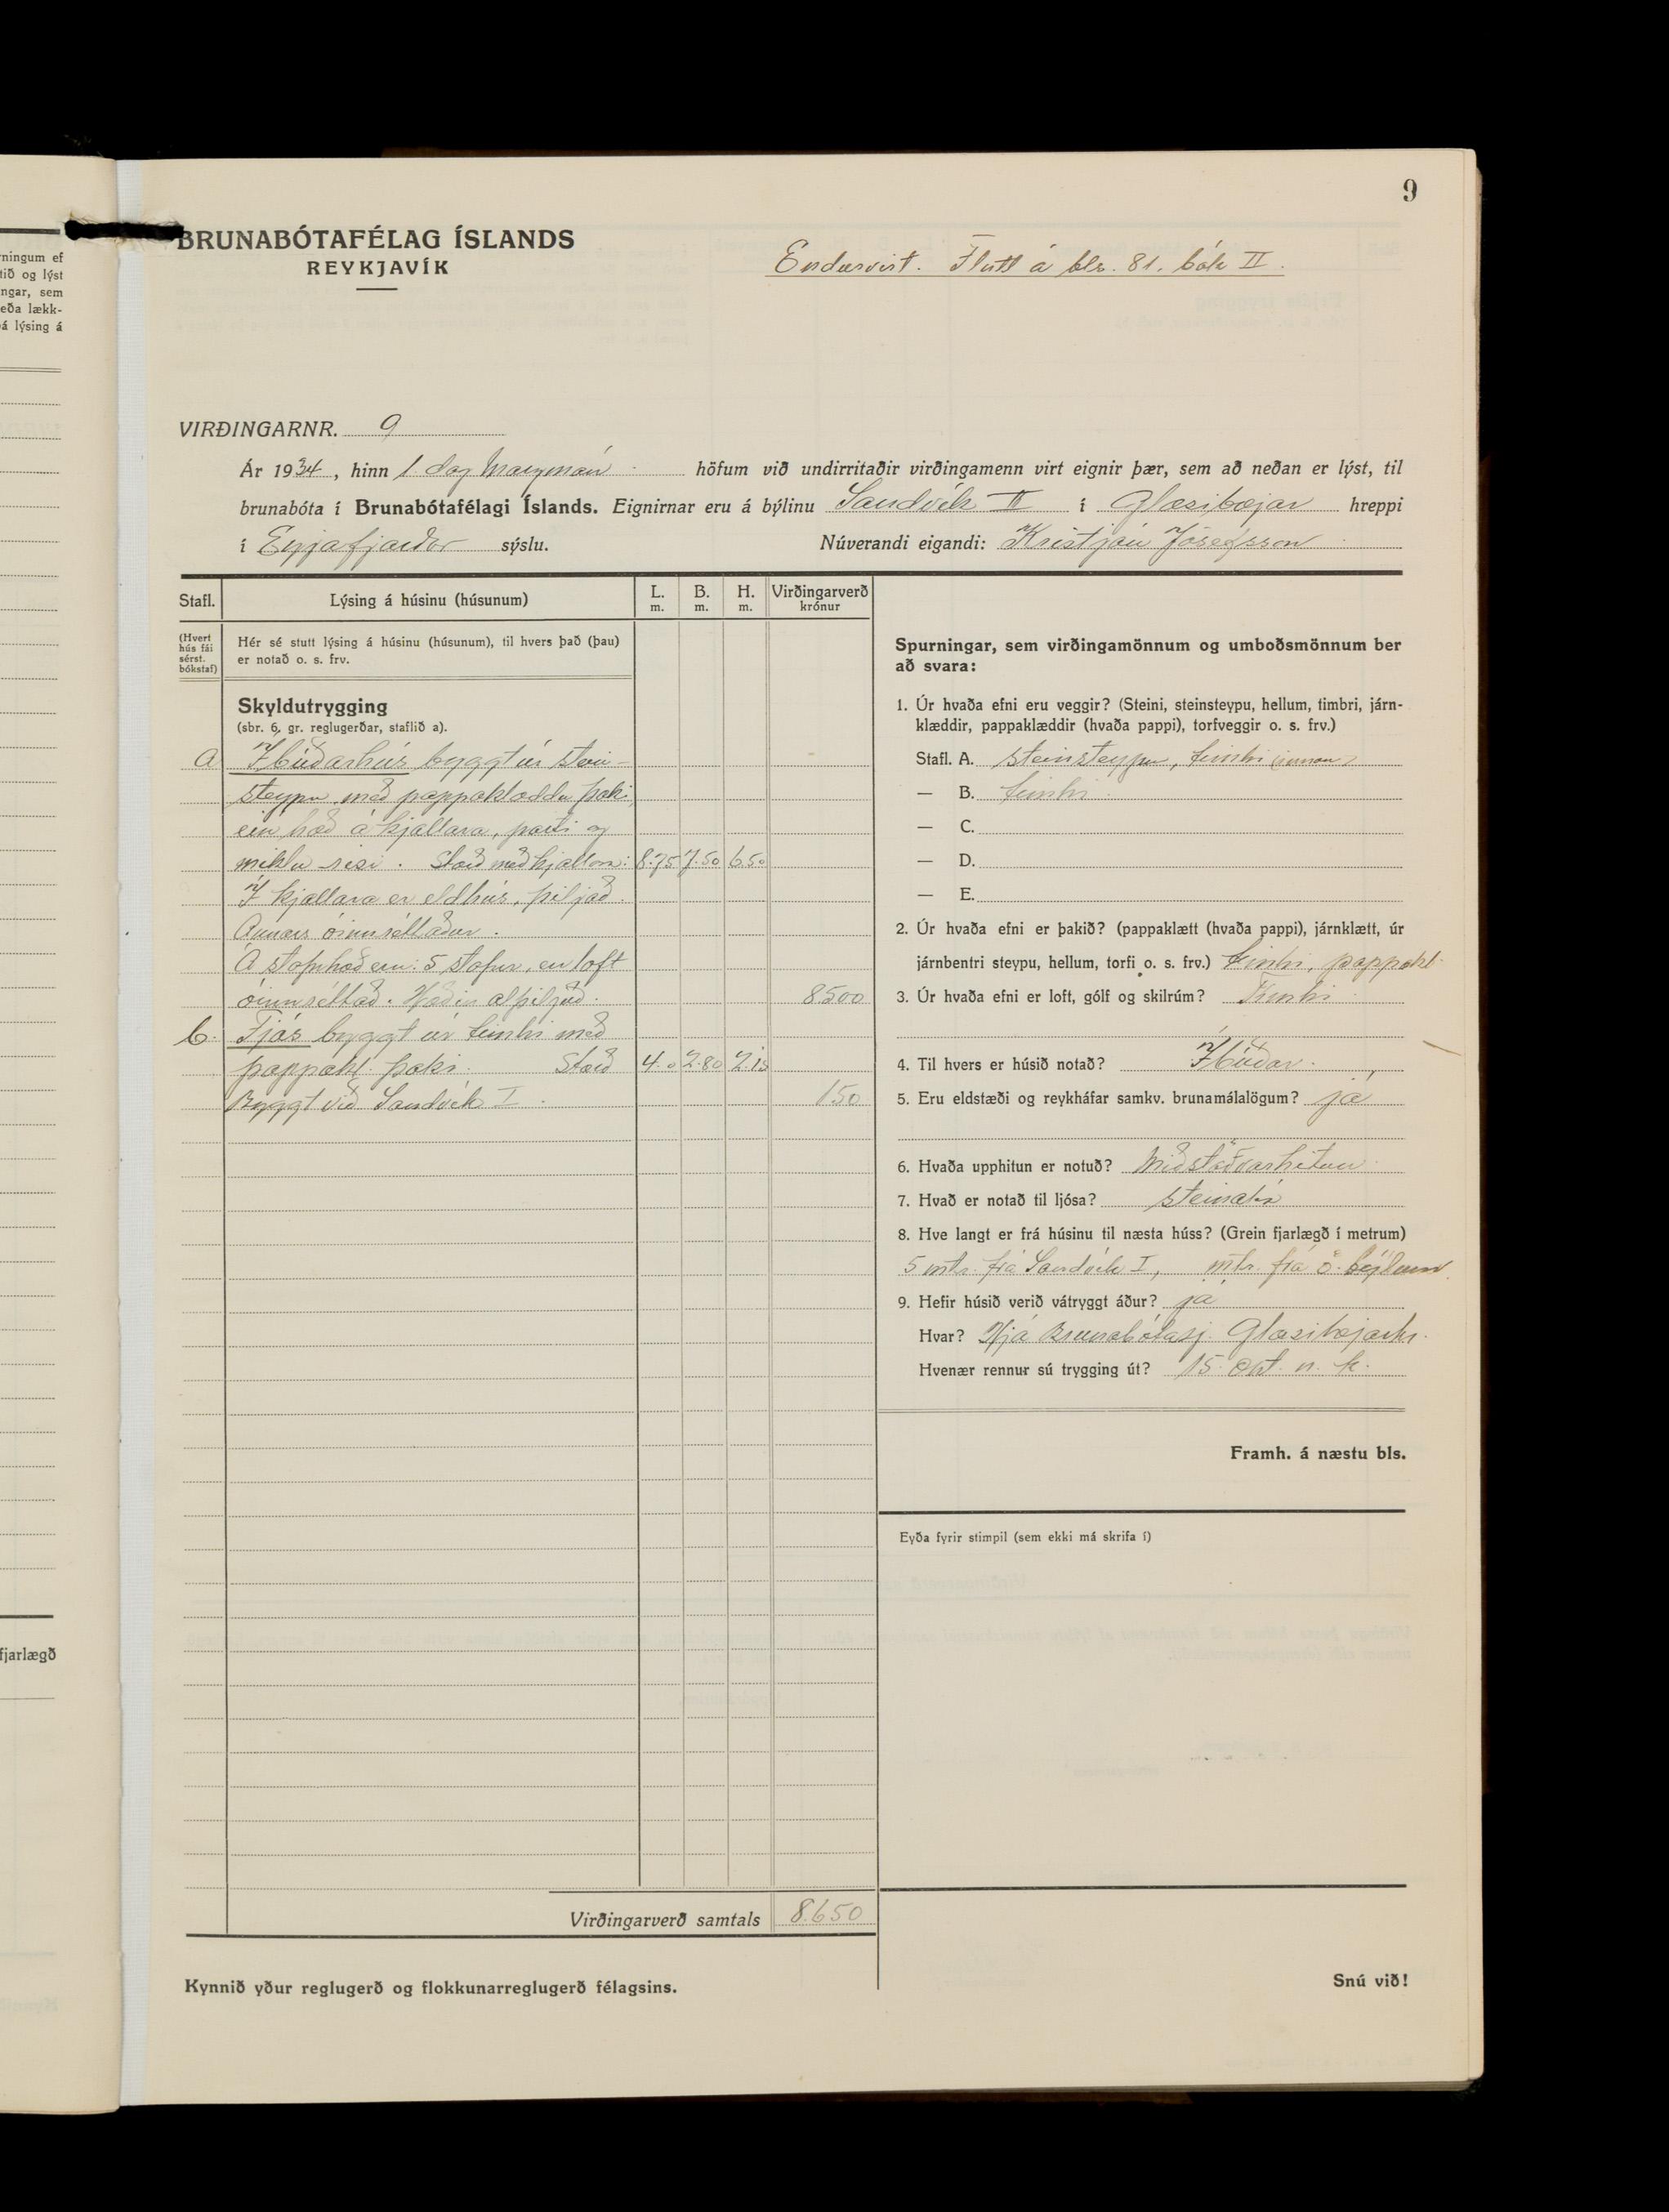 9
BRUNABÓTAFÉLAG ÍSLANDS
REYKJAVÍK
Endurvirt. Flutt á bls. 81. bók II.
VIRÐINGARNR. 9
Ár 1934, hinn 1 dag höfum við undirritaðir virðingamenn virt eignir þær, sem að neðan er lýst, til
brunabóta í Brunabótafélagi Íslands. Eignirnar eru á býlinu Sandvík II í Glæsibæjar hreppi
í Eyjafjarðar sýslu. Núverandi eigandi: Kristján Jósefsson
Stafl. Lýsing á húsinu (húsunum) L. m. B. m. H. m. Virðingarverð krónur
(Hvert hús fái sérst. bókstaf) Hér sé stutt lýsing á húsinu (húsunum), til hvers það (þau)
er notað o. s. frv.
Skyldutrygging
(sbr. 6. gr. reglugerðar, staflið a).
a Íbúðarhús byggt úr stein-
steypu með pappaklæddu þaki
ein hæð á kjallara, porti og
miklu risi. Stærð með kjallara: 8.75 7.50 6.50
Í kjallara er eldhús, þiljað.
Annars óinnréttaður.
Á stofuhæð eru: 5 stofur, en loft
óinnréttað. Hæðin alþiljuð. 8500
b. Fjós byggt úr timbri með
pappakl. þaki. Stærð 4.0 2.80 2.15
Byggt við Sandvík I. 150
Virðingarverð samtals 8.650
Kynnið yður reglugerð og flokkunarreglugerð félagsins.
Spurningar, sem virðingamönnum og umboðsmönnum ber
að svara:
1. Úr hvaða efni eru veggir? (Steini, steinsteypu, hellum, timbri, járn-
klæddir, pappaklæddir (hvaða pappi), torfveggir o. s. frv.)
Stafl. A. steinsteypu, timbri (innan)
— B. timbri.
— C.
— D.
— E.
2. Úr hvaða efni er þakið? (pappaklætt (hvaða pappi), járnklætt, úr
járnbentri steypu, hellum, torfi o. s. frv.) timbri, pappakl.
3. Úr hvaða efni er loft, gólf og skilrúm? Timbri
4. Til hvers er húsið notað? Íbúðar.
5. Eru eldstæði og reykháfar samkv. brunamálalögum? já
6. Hvaða upphitun er notuð? Miðstöðvarhitun
7. Hvað er notað til ljósa? steinolía
8. Hve langt er frá húsinu til næsta húss? (Grein fjarlægð í metrum)
5 mtr. frá Sandvík I, mtr. frá ö. býlum.
9. Hefir húsið verið vátryggt áður? já
Hvar? Hjá Brunabótasj. Glæsibæjarhr.
Hvenær rennur sú trygging út? 15. okt. n. k.
Framh. á næstu bls.
Eyða fyrir stimpil (sem ekki má skrifa í)
Snú við!
rningum ef
tið og lýst
ngar, sem
eða lækk-
á lýsing á
fjarlægð